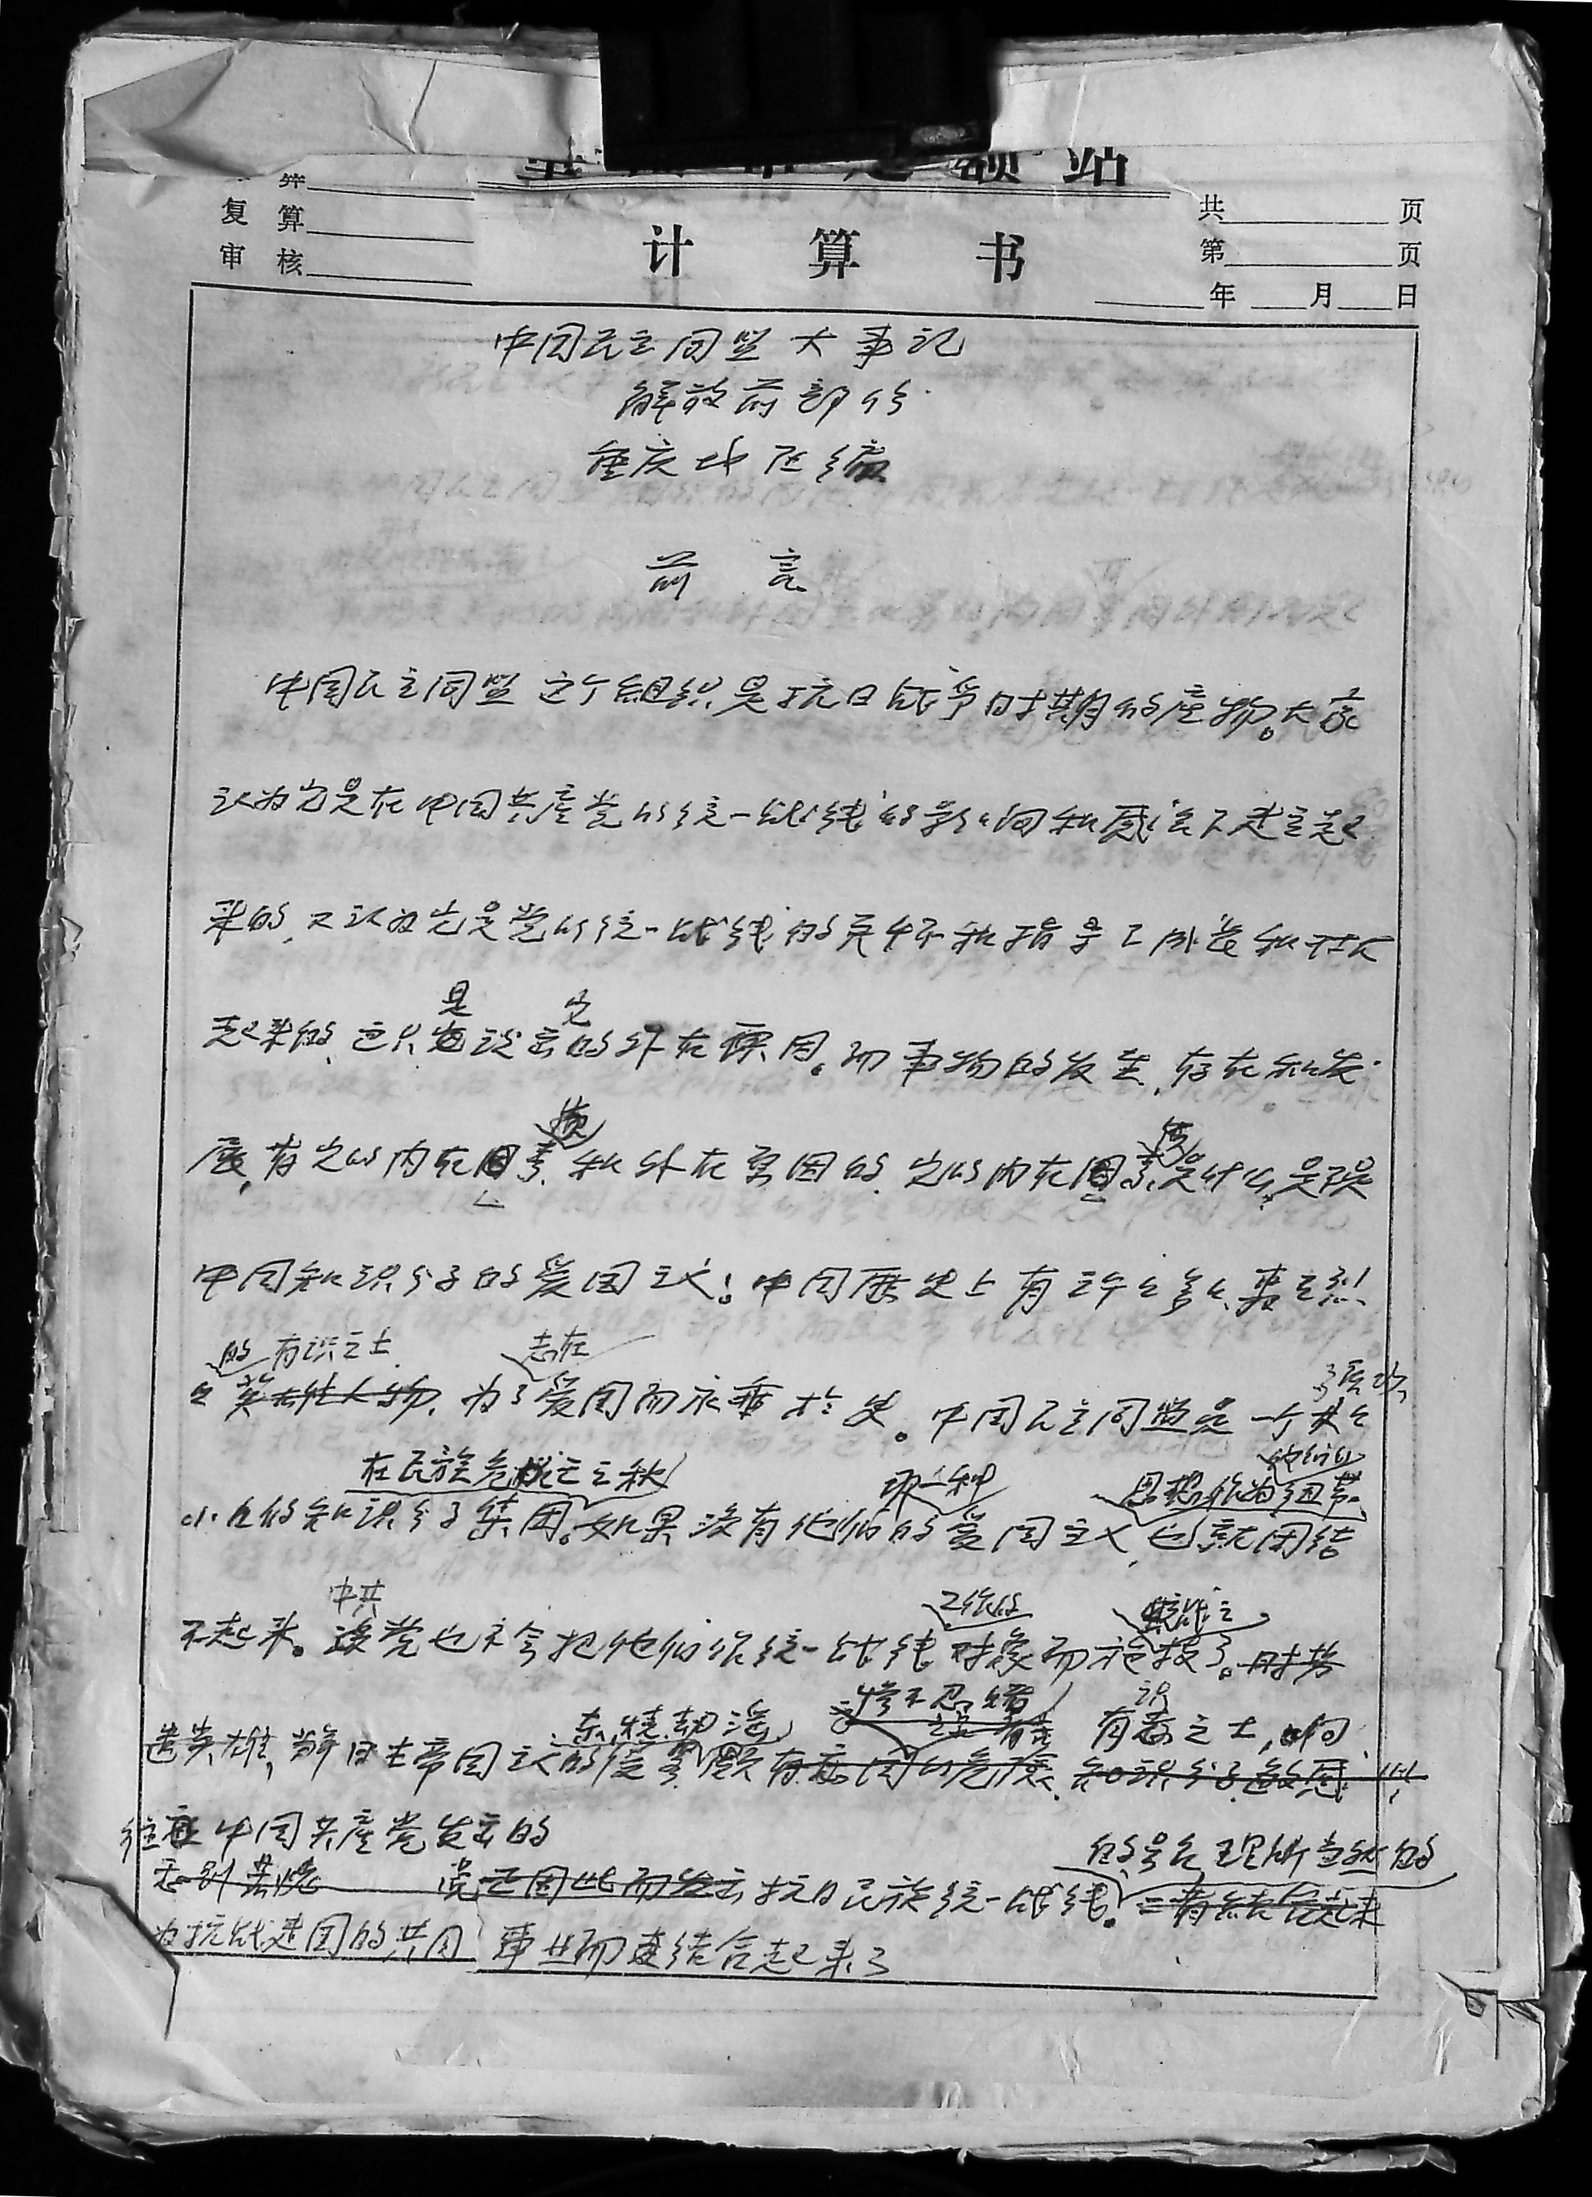 算
复 算
审 核
定 额 站
计 算 书
共 页
第 页
年 月 日
中国民主同盟大事记
解放前部份
重庆地区编
前 言
中国民主同盟这个组织是抗日战争时期的产物。大家
认为它是在中国共产党的统一战线的影响和感召下建立起
来的,又认为它是党的统一战线的关怀和指导下成长和壮大
是 它
起来的,这只说出的外在原因。而事物的发生,存在和发
展,有它的内在因素和外在原因的,它的内在因素是什么,是
中国知识分子的爱国主义。中国历史上有许许多多、轰轰烈
的 有识之士 志在
烈英雄人物,为了爱国而永垂於史。中国民主同盟是一个
在民族危亡之秋 那一种 思想作为纽带 他们的
的知识分子集团。如果没有他们的爱国主义,也就团结
中共 工作的
不起来。党也不会把他们作统一战线对象而施投了。时势
惨不忍睹 识
造英雄,当年日本帝国主义的侵略 有 之士,响
往在中国共产党发出的
的号召理所当然的
党正因此而发出抗日民族统一战线。二者结合起来
为抗战建国的共同事业而连结合起来了